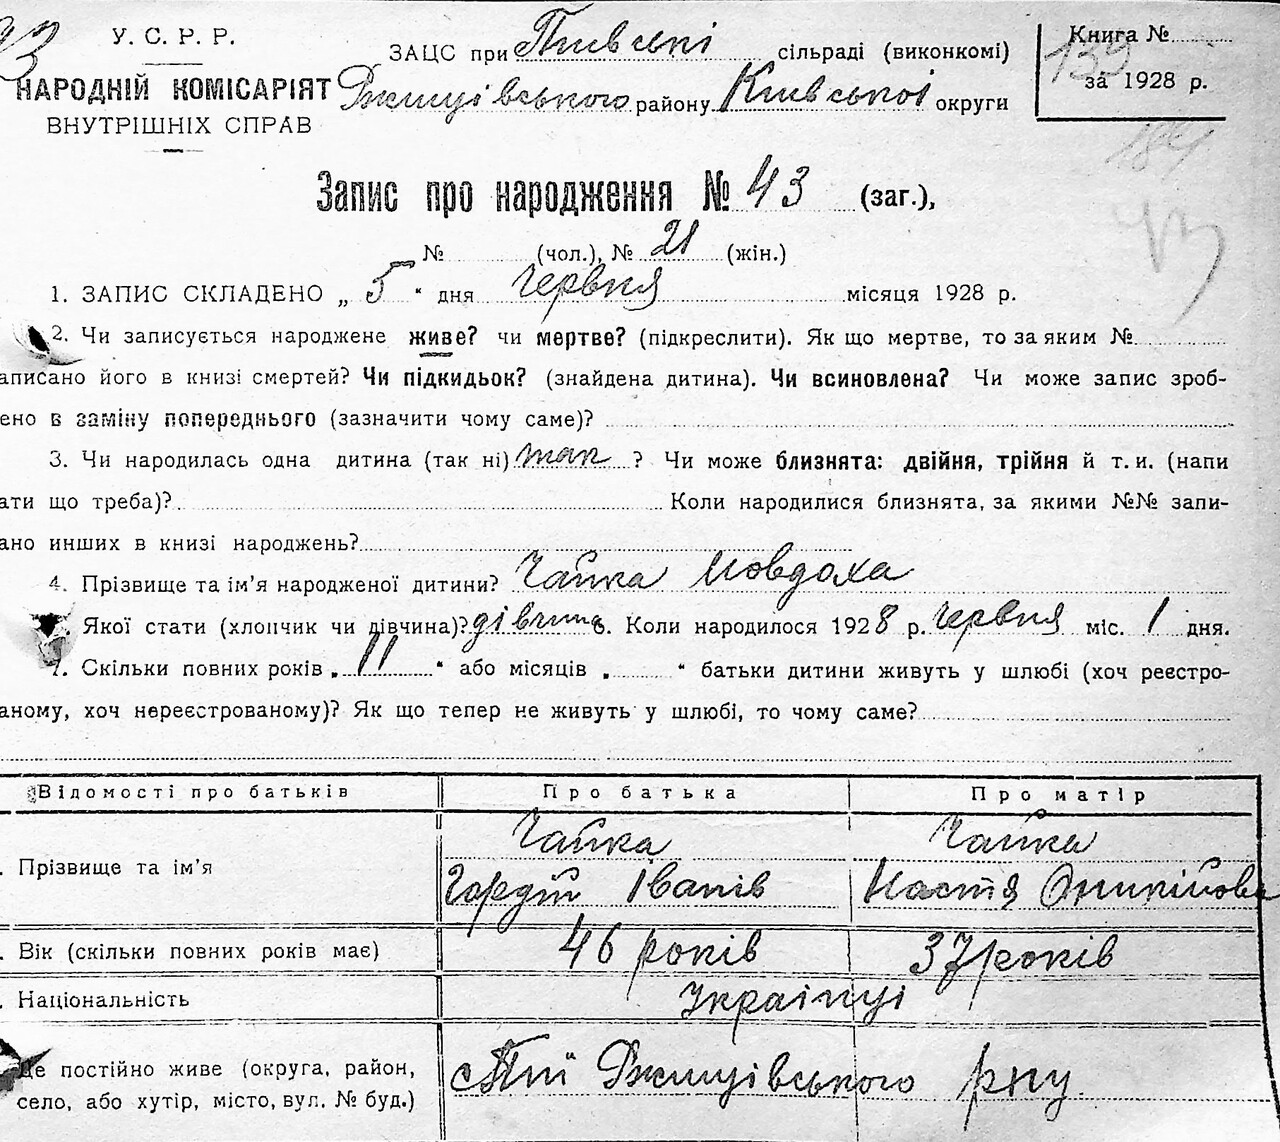 У. С. Р. Р.
НАРОДНІЙ КОМІСАРІЯТ
ВНУТРІШНІХ СПРАВ
ЗАЦС при сільраді (виконкомі)
Ржищівського району Київської округи
Книга № 139
за 1928 р.
Запис про народження № 43 (заг.),
№ (чол.), № 21 (жін.)
1. ЗАПИС СКЛАДЕНО „ 5 “ дня червня місяця 1928 р.
2. Чи записується народжене живе? чи мертве? (підкреслити). Як що мертве, то за яким №
аписано його в книзі смертей? Чи підкидьок? (знайдена дитина). Чи всиновлена? Чи може запис зроб-
ено в заміну попереднього (зазначити чому саме)?
3. Чи народилась одна дитина (так ні) так ? Чи може близнята: двійня, трійня й т. и. (напи
ати що треба)? Коли народилися близнята, за якими №№ запи-
ано инших в книзі народжень?
4. Прізвище та ім’я народженої дитини? Чайка Мовдоха
Якої стати (хлопчик чи дівчина)? дівчина 6. Коли народилося 1928 р. червня міс. 1 дня.
7. Скільки повних років „ 11 “ або місяців „ “ батьки дитини живуть у шлюбі (хоч реєстро-
аному, хоч нереєстрованому)? Як що тепер не живуть у шлюбі, то чому саме?
Відомості про батьків Про батька Про матір
Чайка Чайка
. Прізвище та ім’я Гордій Іванів Настя Оникійова
. Вік (скільки повних років має) 46 років 37 років
. Національність Українці
Це постійно живе (округа, район, Ржищівського рну
село, або хутір, місто, вул. № буд.)